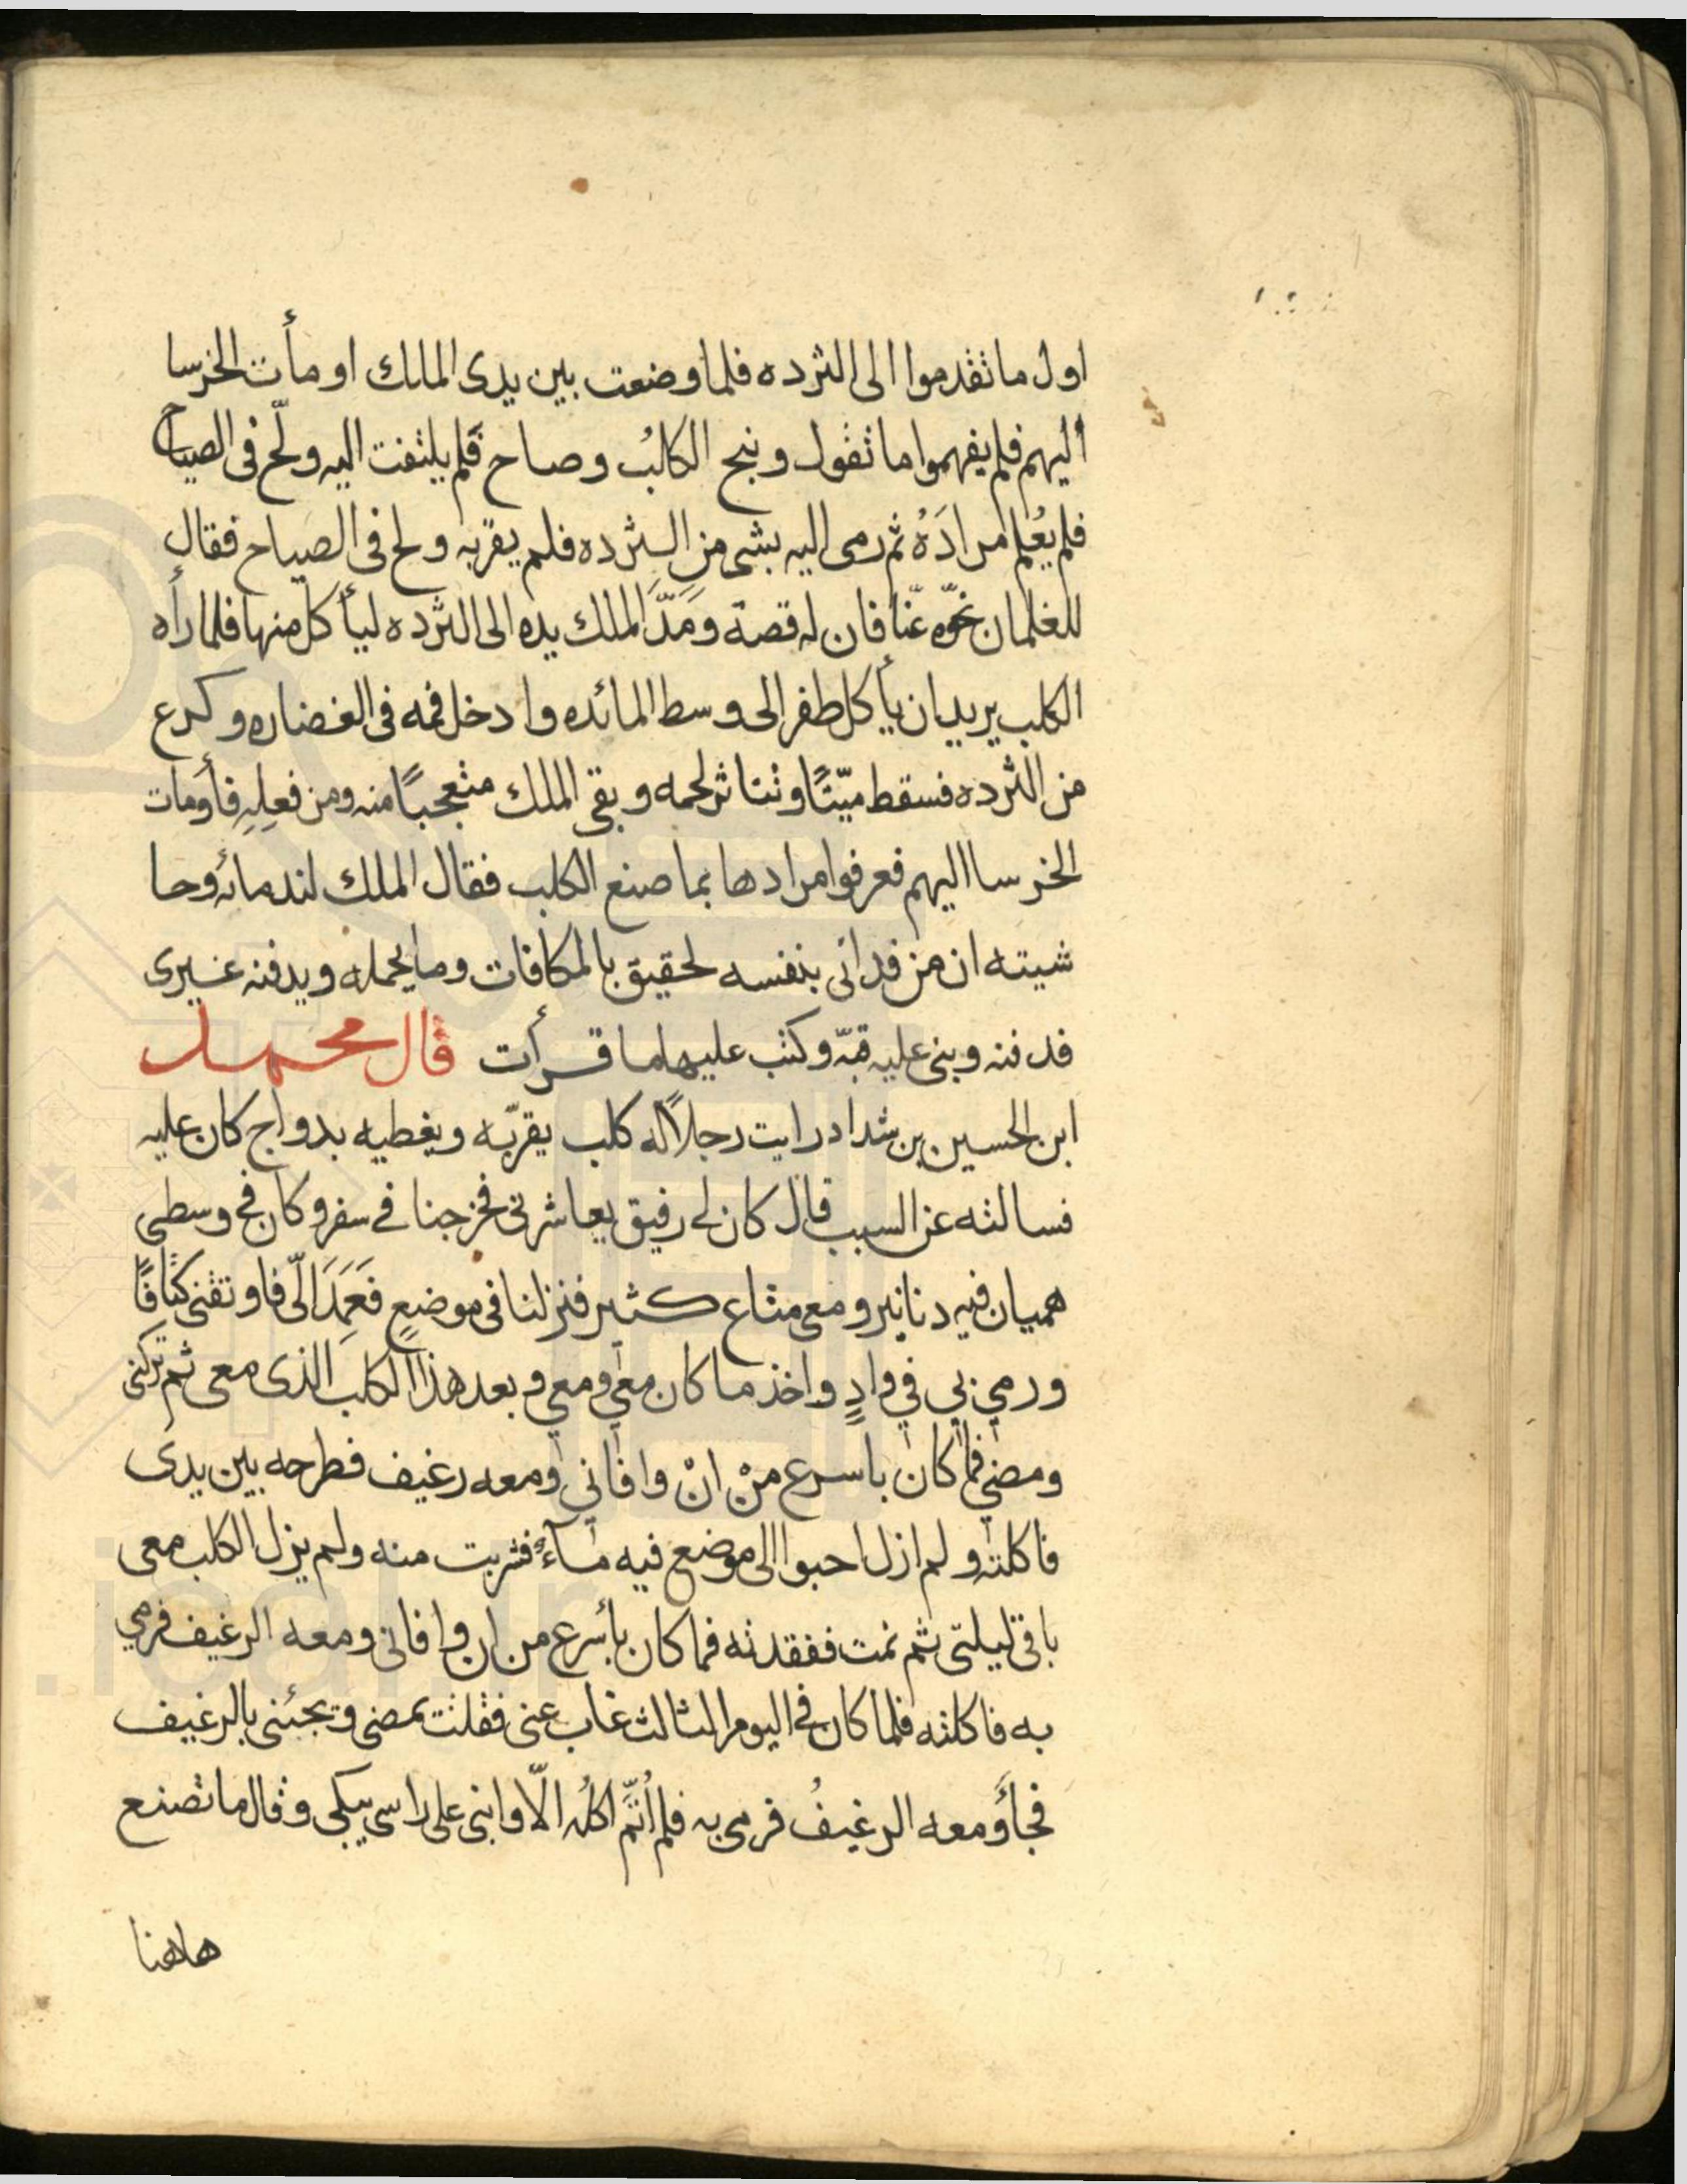 اول ما تقدموا الى الثرده فلما وضعت بين يدى الملك اومأت الخرسا
اليهم فلم يفهموا ما تقول ونبح الكلبُ وصاح فلم يلتفت اليه ولحّ فى الصياح
فلم يُعلم مرادَهُ ثم رمى اليه بشى من الثرده فلم يقربه ولح فى الصياح فقال
للغلمان نحّوه عنّا فان له قصة ومَدَّ الملك يده الى الثرده ليأكل منها فلما رأه
الكلب يريد ان يأكل طفر الى وسط المائده وادخل فمه فى الغضاره وكرع
من الثرده فسقط ميّتًا وتناثر لحمه وبقى الملك متعجبًا منه ومن فعلِهِ فأومات
الخرسا اليهم فعرفوا مرادها بما صنع الكلب فقال الملك لندمائه وحا
شيته ان من فدانى بنفسه لحقيق بالمكافات وما يحمله ويدفنه غيرى
فدفنه وبنى عليه قبّه وكتب عليها ما قرأت قال محمد
ابن الحسين بن شداد رايت رجلاً له كلب يقرّبه ويغطيه بدواج كان عليه
فسالته عن السبب قال كان لى رفيق يعاشرنى فخرجنا فى سفر وكان فى وسطى
هميان فيه دنانير ومعى متاع كثير فنزلنا فى موضعٍ فعَمَدَ الىّ فاوثقنى كتافًا
ورمي بي في وادٍ واخذ ما كان معي ومعي وبعد هذا الكلب الذى معى ثم تركنى
ومضي فما كان باسرع منْ انْ وافاني ومعه رغيف فطرحه بين يدى
فاكلته ولم ازل احبوا الى موضع فيه مآءٌ فشربت منه ولم يزل الكلب معى
باقى ليلتى ثم نمت ففقدته فما كان بأسرع من ان وافانى ومعه الرغيف فرمي
به فاكلته فلما كان فى اليوم الثالث غاب عنى فقلت يمضى ويجئنى بالرغيف
فجأ ومعه الرغيفُ فرمى به فلم أُتمَّ اكلُه الّا وابنى على راسى يبكى وقال ما تصنع
هاهنا